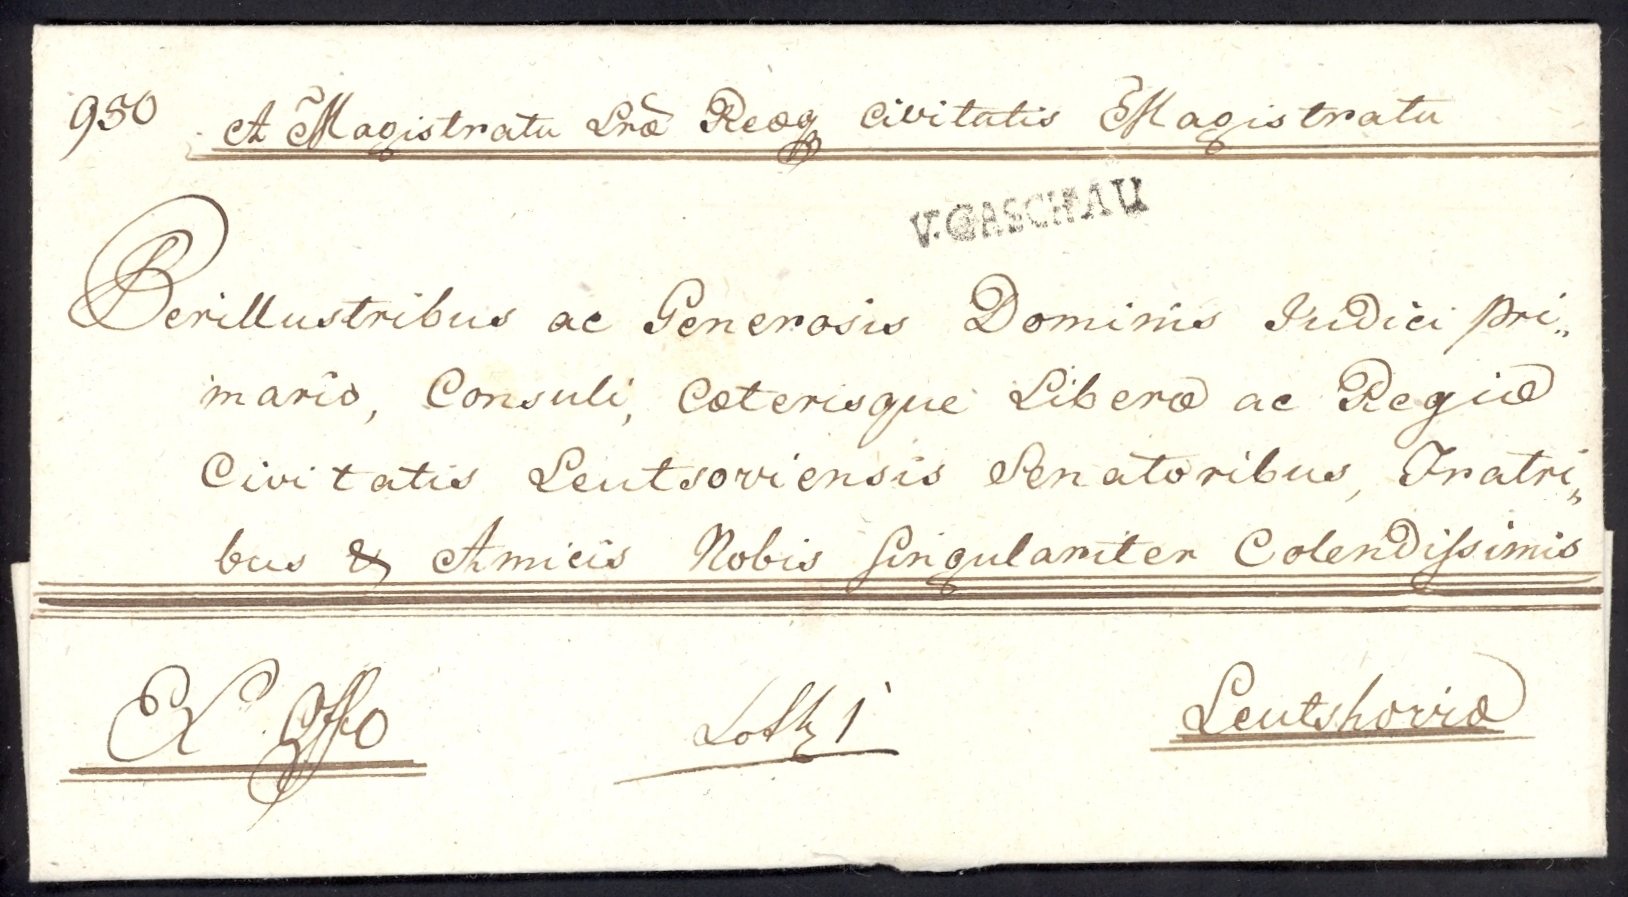 950 A Magistratu Lræ Reæq Civitatis Magistratu
V. CASCHAU
Perillustribus ac Generosis Dominis Judici Pri„
mario, Consuli, Cæterisque Liberæ ac Regiæ
Civitatis Leutsoviensis Senatoribus, Fratri„
bus & Amicis Nobis Singulariter Colendissimis
Ex Offo
Loth 1
Leutshoviæ